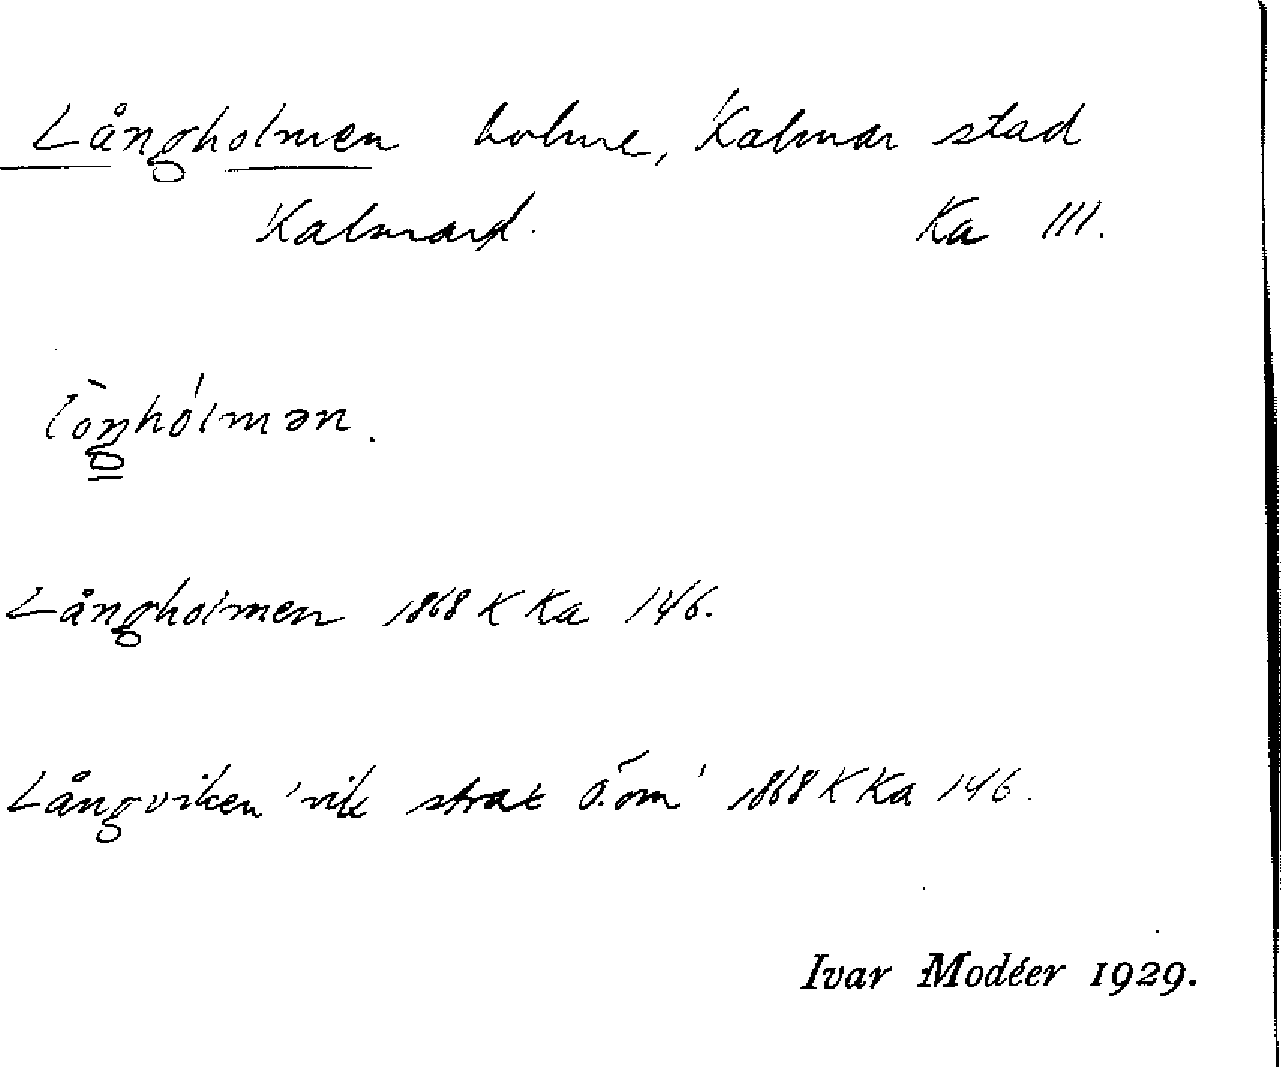 Långholmen holme, Kalmar stad
Kalmard. Ka III.
lòŋhólmən.
Långholmen 1868 K Ka 146.
Långviken 'vik strax ö. om' 1868 K Ka 146.
Ivar Modéer 1929.